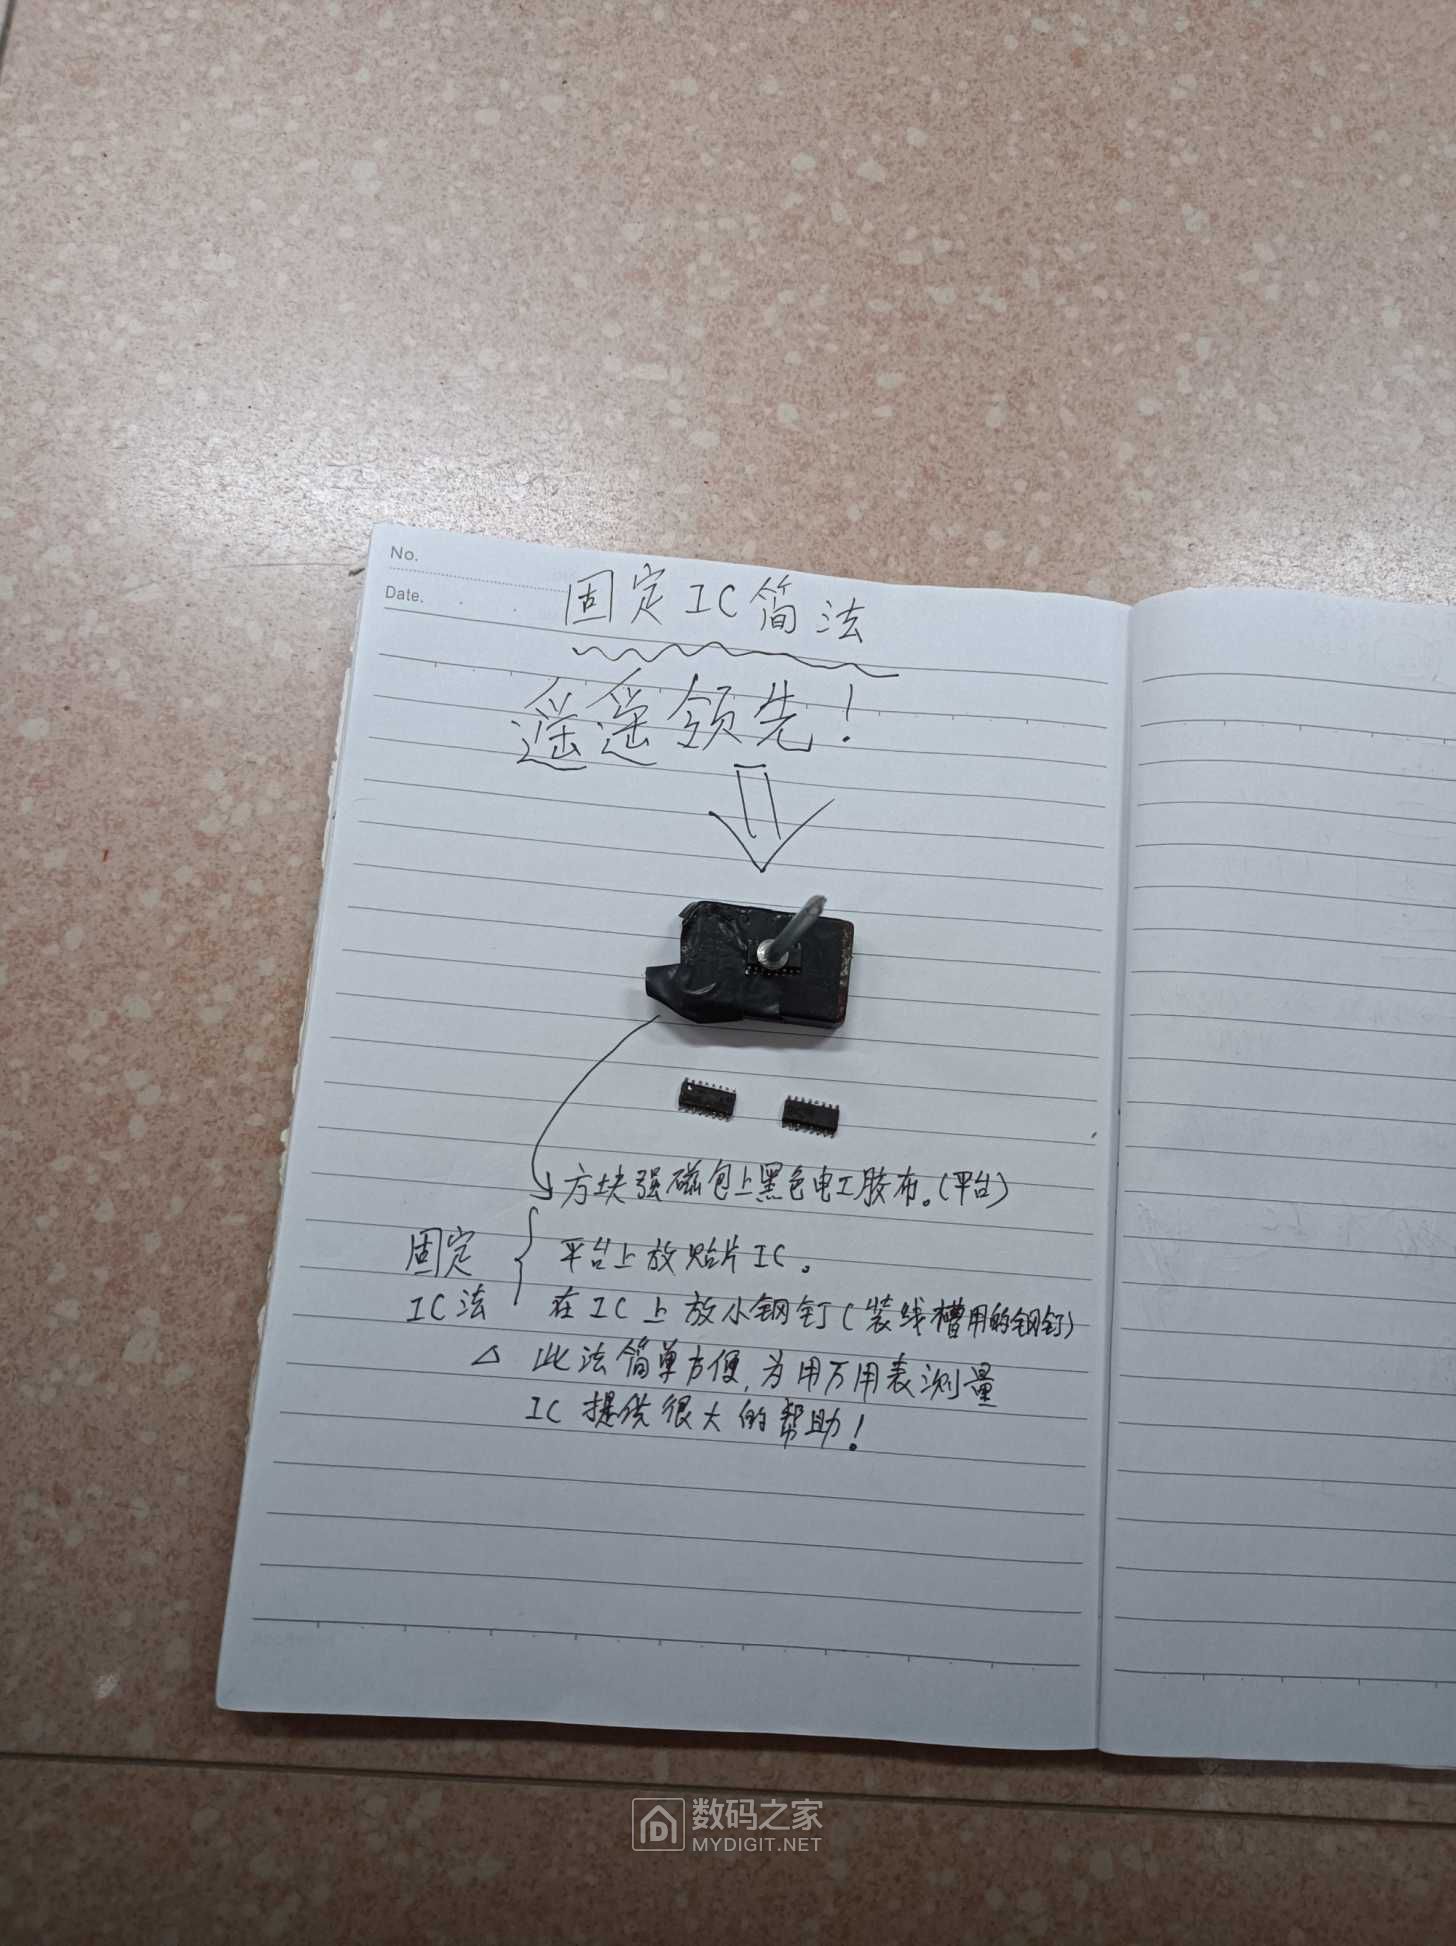 No.
Date.
固定IC简法
遥遥领先!
方块强磁包上黑色电工胶布。(平台)
固定
IC法
平台上放贴片IC。
在IC上放小钢钉(装线槽用的钢钉)
△ 此法简单方便,为用万用表测量
IC提供很大的帮助!
数码之家
MYDIGIT.NET